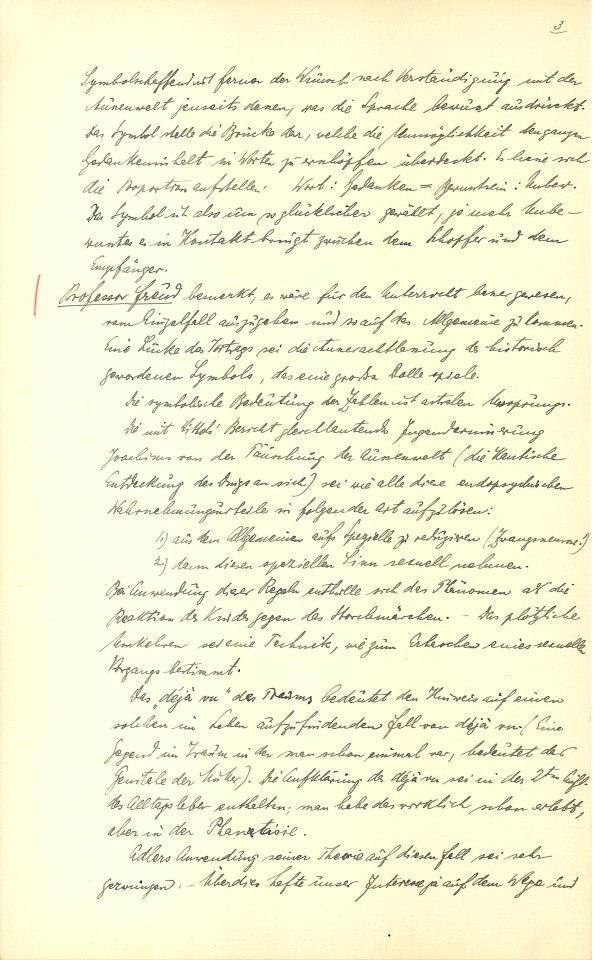 3
Symbolschaffend ist ferner der Wunsch nach Verständigung mit der
Aussenwelt jenseits dessen, was die Sprache bewusst ausdrückt.
Das Symbol stelle die Brücke dar, welche die Unmöglichkeit den ganzen
Gedankeninhalt in Worten zu erschöpfen überdeckt. Es liesse sich
die Proportion aufstellen: Wort : Gedanken = Bewusstsein : Unbew.
Das Symbol ist also um so glücklicher gewählt, je mehr Unbe-
wusstes es in Kontakt bringt zwischen dem Schöpfer und dem
Empfänger.
Professor Freud bemerkt, es wäre für den Unterricht besser gewesen,
vom Einzelfall auszugehen und so auf das Allgemeine zu kommen.
Eine Lücke des Vortrags sei die Ausserachtlassung des historisch
gewordenen Symbols, das eine grosse Rolle spiele.
Die symbolische Bedeutung der Zahlen ist astralen Ursprungs.
Die mit Stekels Bericht gleichlautende Jugenderinnerung
Joachims von der Täuschung der Aussenwelt (die Kantische
Entdeckung des Dings an sich) sei wie alle diese endopsychischen
Wahrnehmungsurteile in folgender Art aufzulösen:
1.) aus dem Allgemeinen aufs Spezielle zu reduzieren (Zwangsneurose!)
2.) dann diesen speziellen Sinn sexuell nehmen.
Bei Anwendung dieser Regeln enthülle sich das Phänomen als die
Reaktion des Kindes gegen das Storchmärchen. – Das plötzliche
Umkehren sei eine Technik, wie zum Erhaschen eines sexuellen
Vorgangs bestimmt.
Das „déjà vu" des Traums bedeutet den Hinweis auf einen
solchen im Leben aufzufindenden Fall von déjà vu. (Eine
Gegend im Traum in der man schon einmal war, bedeutet das
Genitale der Mutter). Die Aufklärung des déjà vu sei in der 2ten Aufl.
des Alltagsleben enthalten; man habe das wirklich schon erlebt,
aber in der Phantasie.
Adlers Anwendung seiner Theorie auf diesen Fall sei sehr
gezwungen. – Überdies hafte unser Interesse ja auf dem Wege und